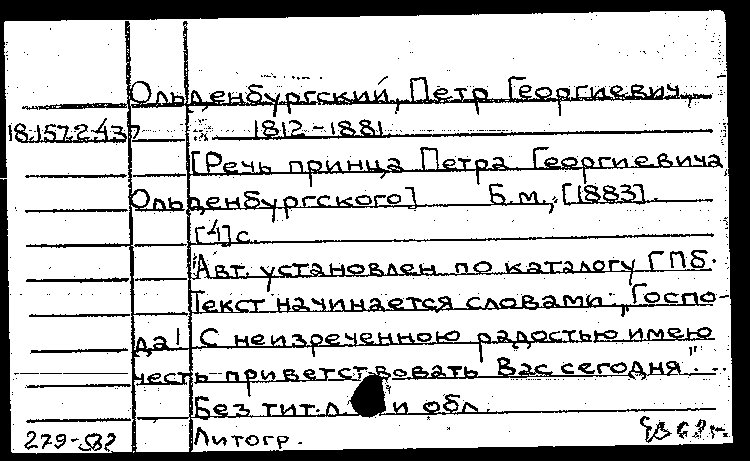 Ольденбургский, Петр Георгиевич,
18.157.2.437 1812-1881
[Речь принца Петра Георгиевича
Ольденбургского] Б.м., [1883].
[4] с.
Авт. установлен по каталогу ГПБ.
Текст начинается словами: „Госпо-
да! С неизреченною радостью имею
честь приветствовать Вас сегодня"...
Без тит.л. и обл.
279-582 Литогр.